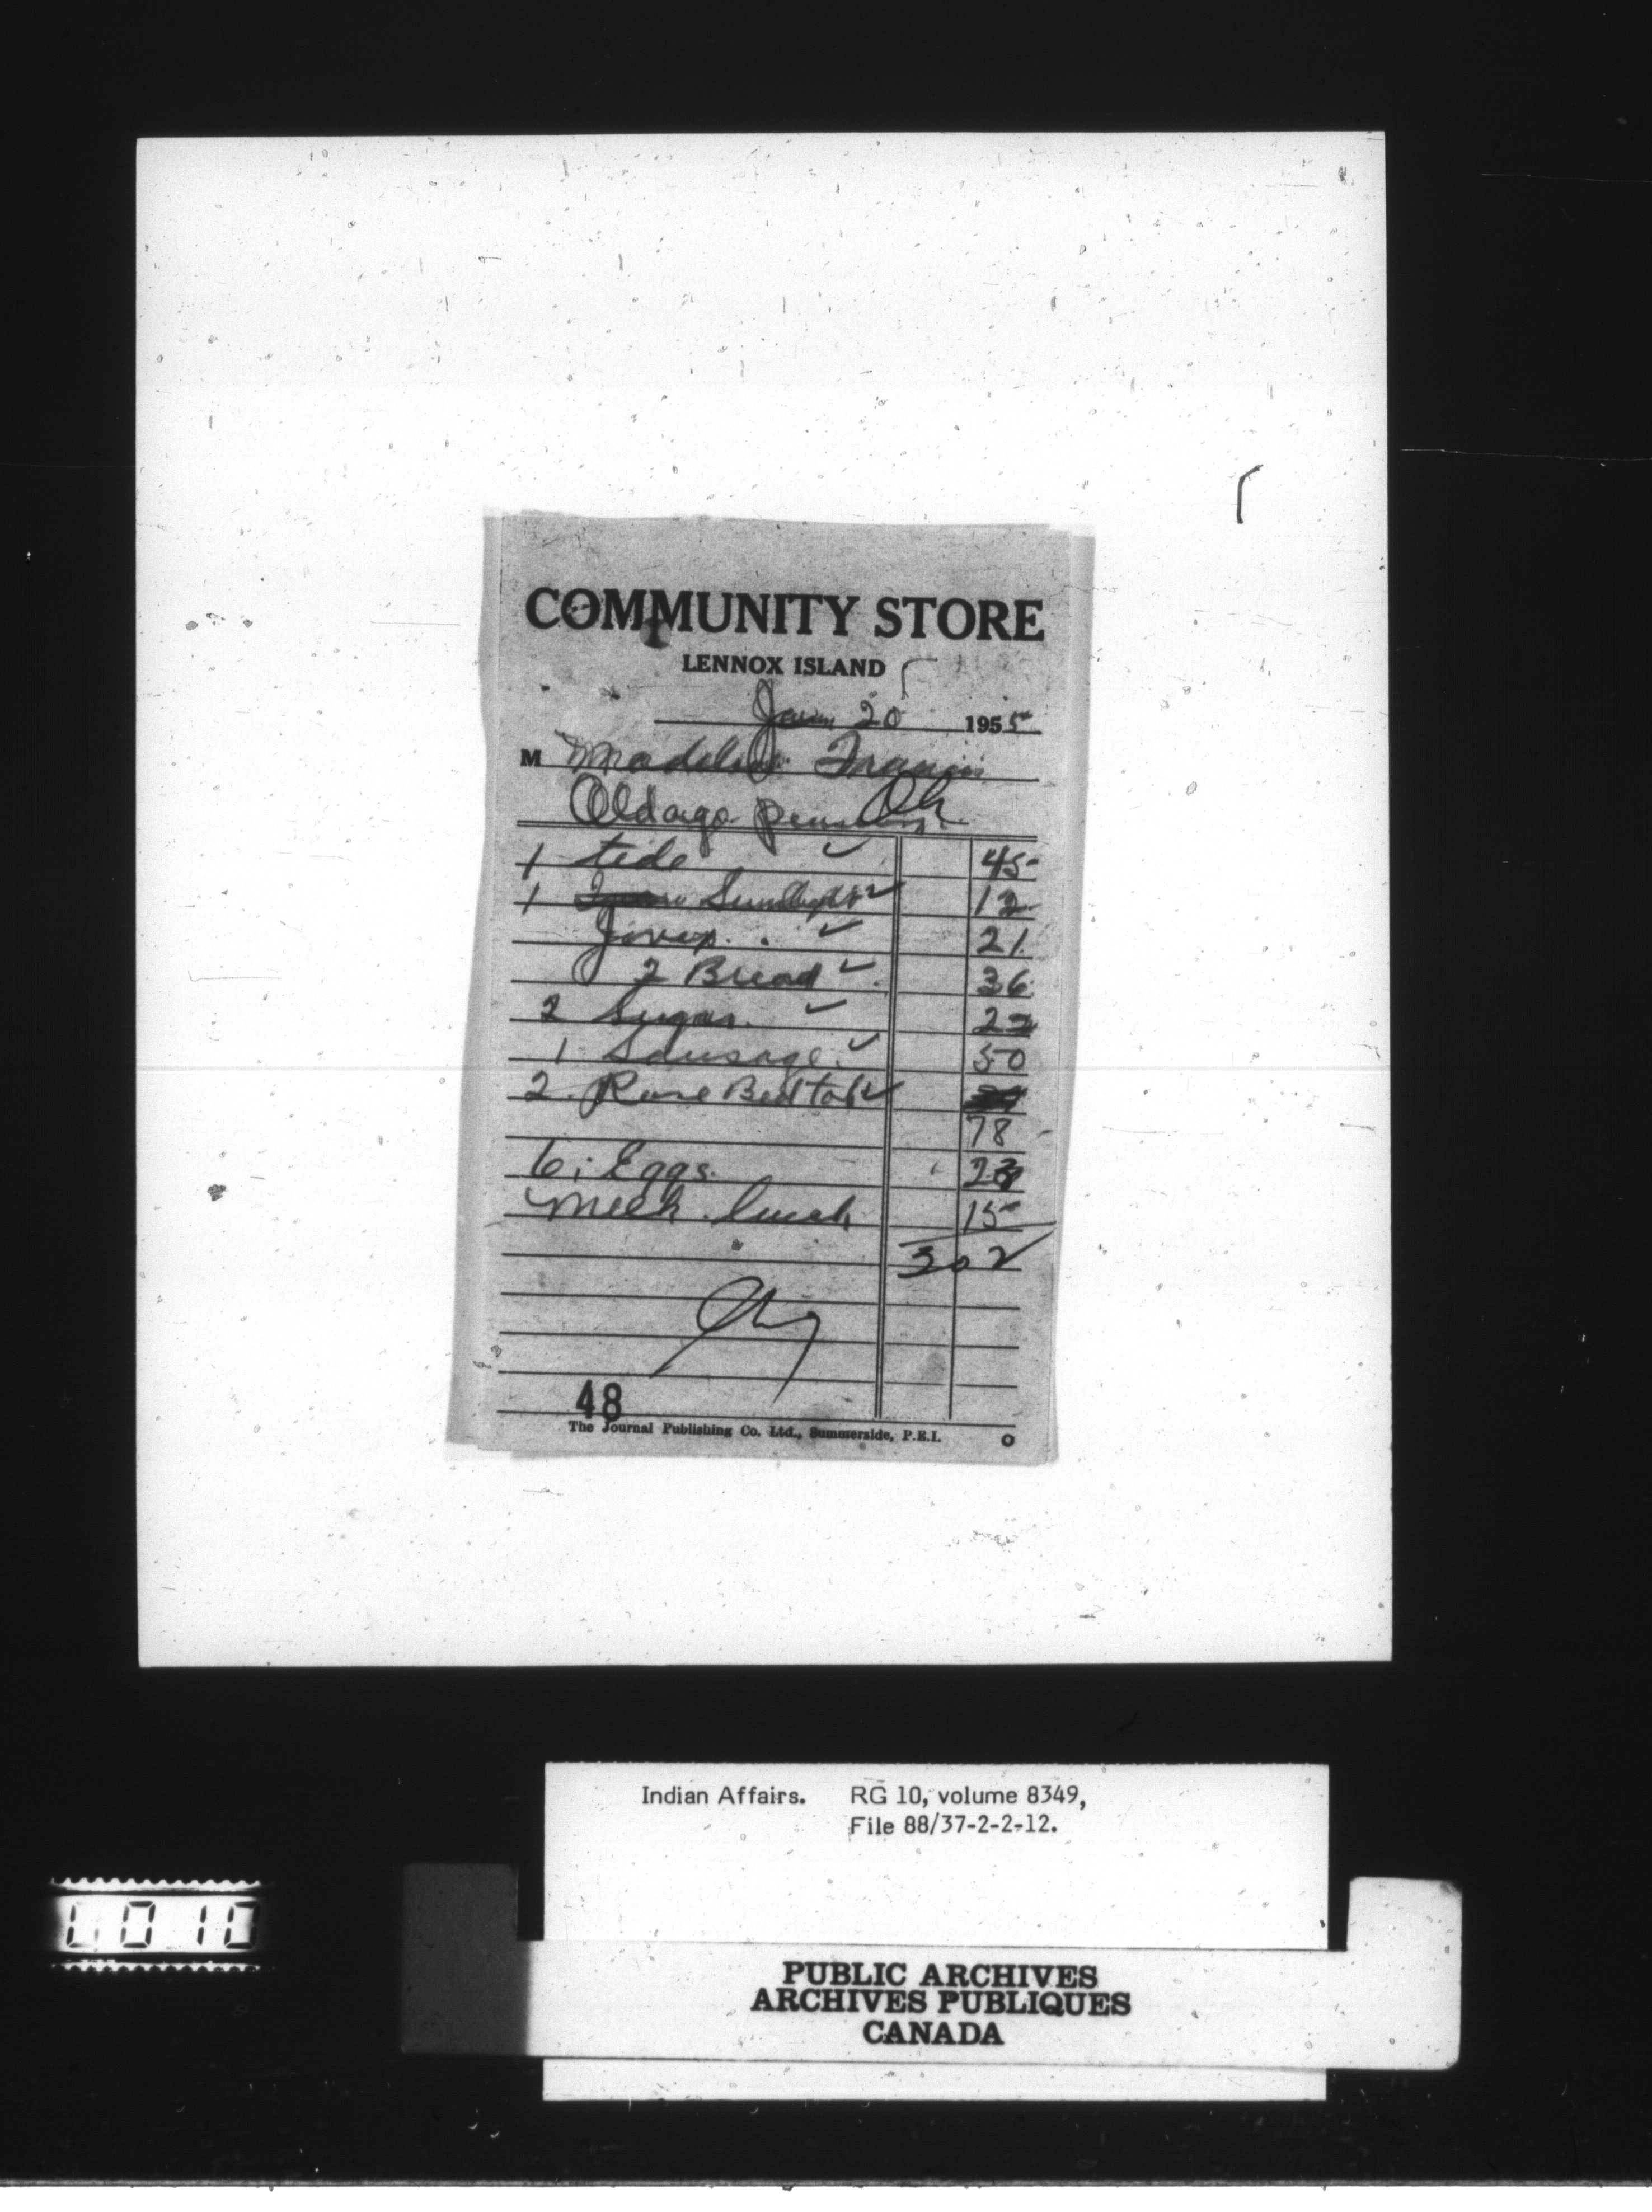 COMMUNITY STORE
LENNOX ISLAND
Jan 20 1955
M Madeline Francis
Oldage pension Ok
1 tide ✓ 45
1 Sunlight ✓ 12
Javex. ✓ 21
2 Bread ✓ 36
2 Sugar. ✓ 22
1 Sausage. ✓ 50
2. Rose Butter ✓
78
6; Eggs. 23
Meck. lunch 15
3 02
48
The Journal Publishing Co. Ltd., Summerside, P.E.I.
Indian Affairs. RG 10, volume 8349,
File 88/37-2-2-12.
L010
PUBLIC ARCHIVES
ARCHIVES PUBLIQUES
CANADA